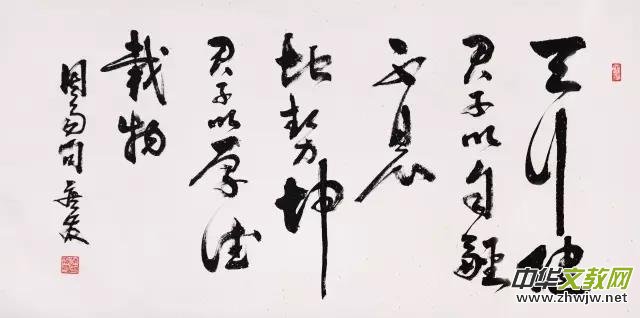 天行健
君子以自彊
不息
地勢坤
君子以厚德
載物
周易句
中华文教网
www.zhwjw.net